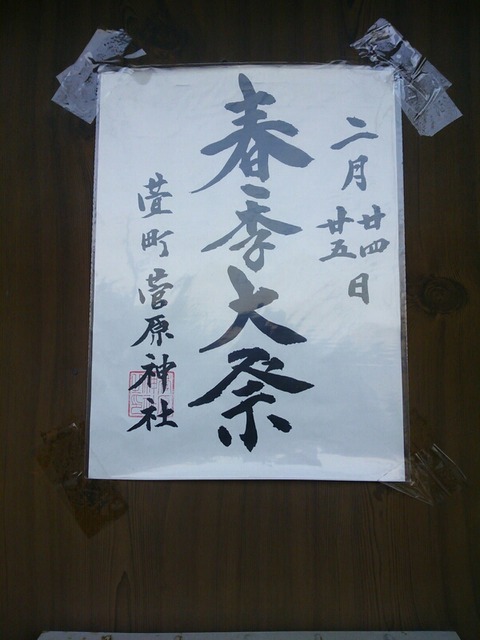 二月廿四日
廿五
春季大祭
萱町菅原神社